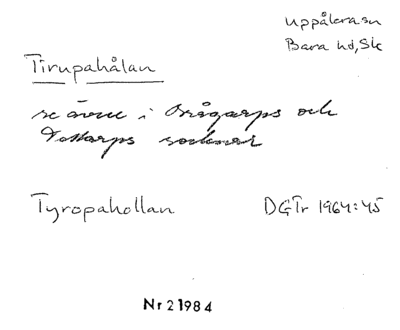 Uppåkra sn
Bara hd, Sk
Tirupahålan
se även i Brågarps och
Tottarps socknar
Tyropahollan
DGTr 1964:45
Nr 2 1984